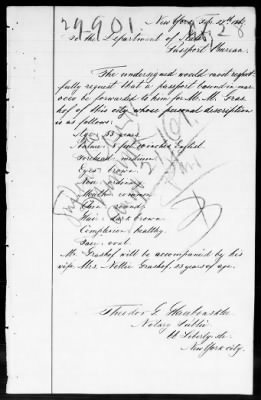 29901.
New York, Sep. 28th
to the Department of State
Passport Bureau.
The undersigned would most respect-
fully request that a passport bound in mo-
rocco be forwarded to him for Mr. M. Gras
hof of this city whose personal description
is as follows:
Age: 53 years.
Stature: 5 feet inches English.
Forehead: medium
Eyes: brown
Nose: ordinary
Mouth: common
Chin: round
Hair: brown
Complexion: healthy
Face: oval
Mr. Grashof will be accompanied by his
wife Mrs. Nettie Grashof, 33 years of age.
Theodor G.
Notary Public
Liberty str.
New York city.